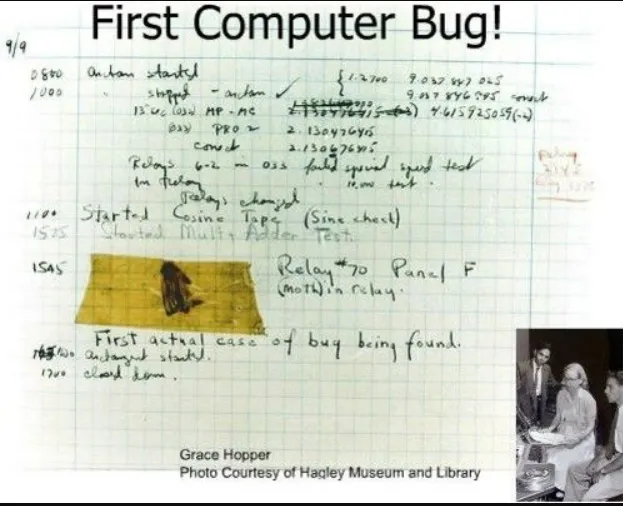 First Computer Bug!
9/9
0800 antan started
1000 " stopped - antan ✓ { 1.2700 9.037 847 025
9.037 846 995 correct
13"uc (032) MP - MC 2.130476415 (-3) 4.615925059(-2)
(033) PRO 2 2.130476415
correct 2.130676415
Relays 6-2 in 033 failed special speed test
in relay " 10.000 test .
Relays changed
1100 Started Cosine Tape (Sine check)
1525 Started Mult + Adder Test.
1545 Relay #70 Panel F
(moth) in relay.
First actual case of bug being found.
antangent started.
1700 closed down.
Grace Hopper
Photo Courtesy of Hagley Museum and Library